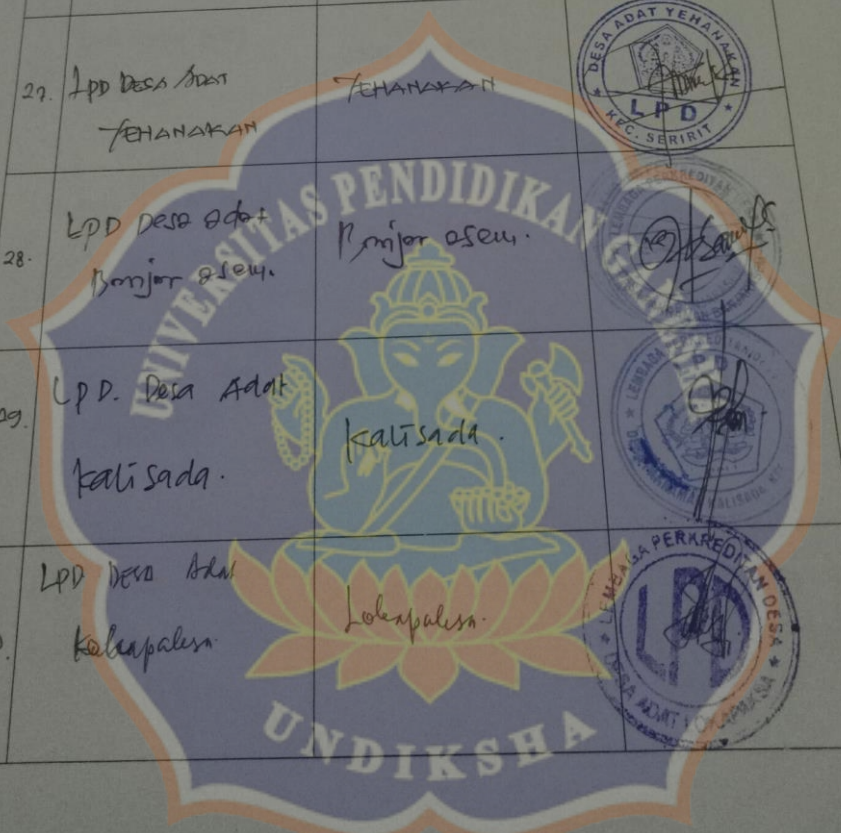 27. LPD DESA ADAT
YEHANAKAN
YEHANAKAN
DESA ADAT YEHANAKAN
LPD
KEC. SERIRIT
28. LPD Desa adat
Banjar asem.
Banjar asem.
LEMBAGA PERKREDITAN
29. LPD. Desa Adat
Kalisada.
Kalisada.
LEMBAGA
KALISADA
LPD DESA Adat
Lokapaksa
Lokapaksa.
LEMBAGA PERKREDITAN DESA
LPD
DESA ADAT LOKAPAKSA
UNIVERSITAS PENDIDIKAN GANESHA
UNDIKSHA